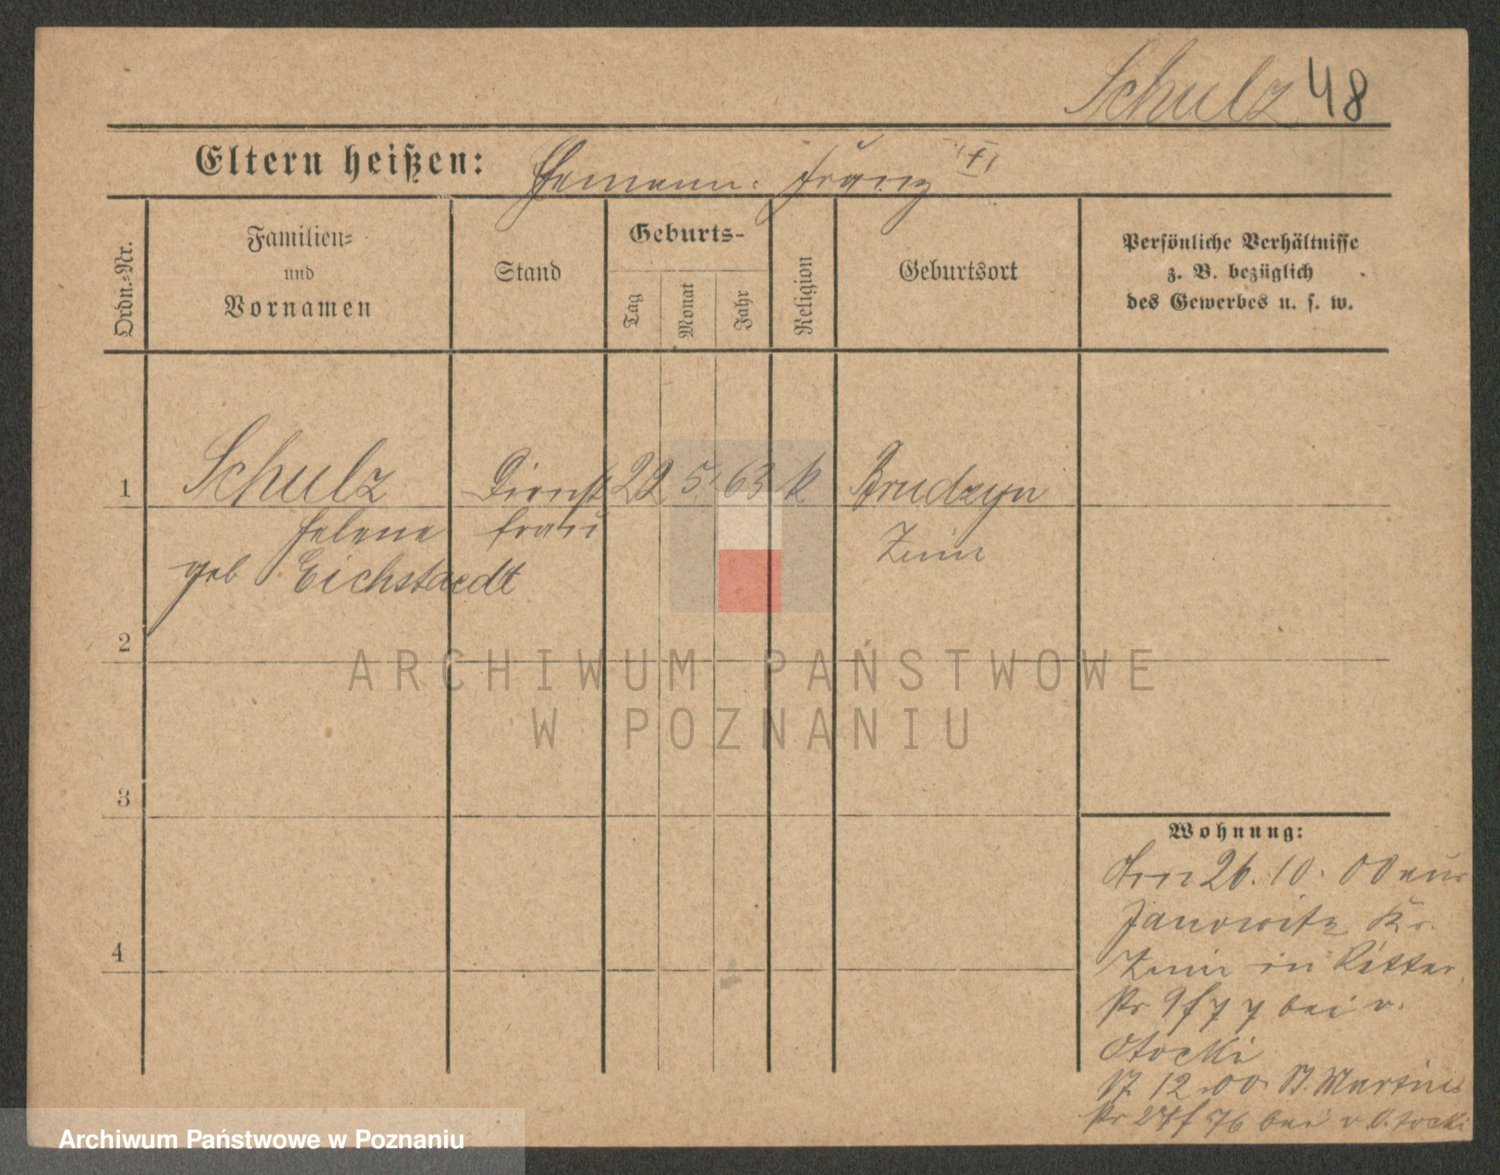 Schulz 48
Eltern heißen: Ehemann: Franz (†)
Ordn.-Nr.
Familien-
und
Vornamen
Stand
Geburts-
Tag
Monat
Jahr
Religion
Geburtsort
Persönliche Verhältnisse
z. B. bezüglich
des Gewerbes u. s. w.
1 Schulz Dienst 22 5. 63 k Brudzyn
Helene frau Znin
geb Eichstaedt
2
3
4
Wohnung:
26. 10. 00 aus
Janowitz Kr.
Znin in Ritter
str 9 bei v.
Otocki
12. 00. St. Martin
str bei v. Otocki
ARCHIWUM PAŃSTWOWE
W POZNANIU
Archiwum Państwowe w Poznaniu